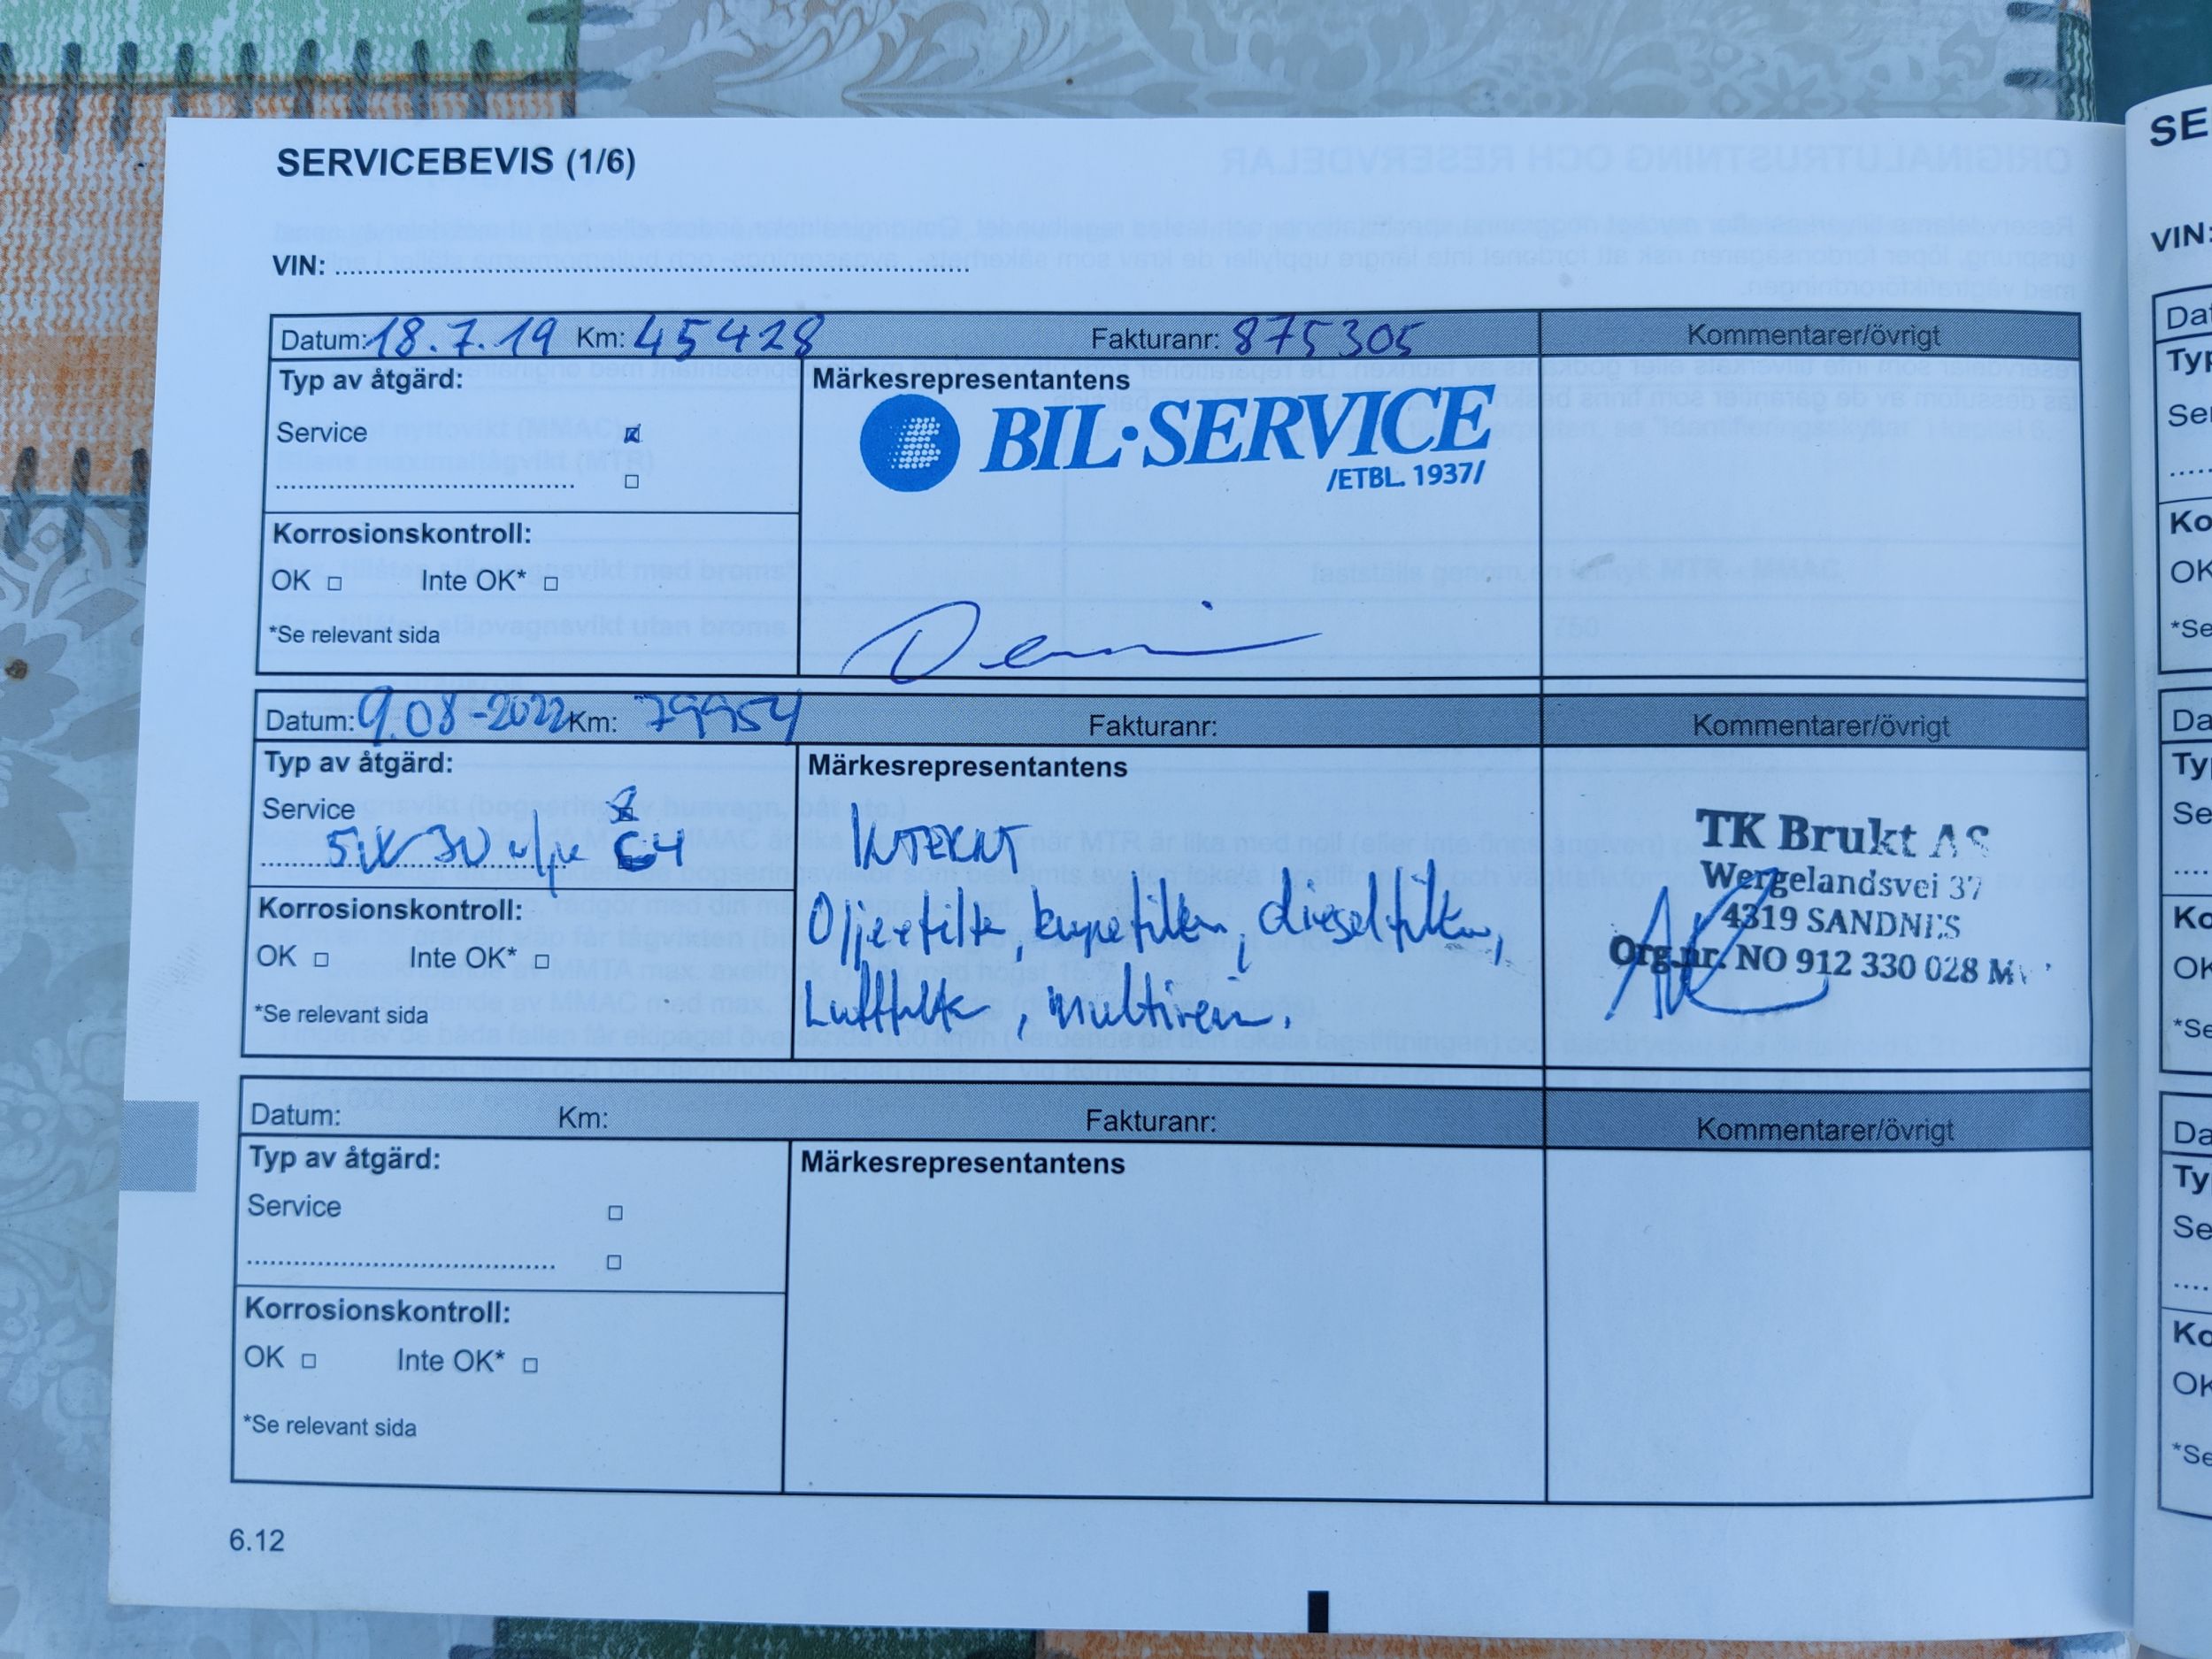 SERVICEBEVIS (1/6)
VIN:
Datum: 18.7.19 Km: 45428 Fakturanr: 875305 Kommentarer/övrigt
Typ av åtgärd:
Märkesrepresentantens
Service
BIL·SERVICE
/ETBL. 1937/
Korrosionskontroll:
OK Inte OK*
*Se relevant sida
Datum: 9.08-2022 Km: 79954 Fakturanr: Kommentarer/övrigt
Typ av åtgärd:
Märkesrepresentantens
Service
5W 30 C4
INTERNT
Oljefilte, kupefilter, dieselfilter,
Luftfilte, Multirem.
TK Brukt AS
Wergelandsvei 37
4319 SANDNES
Org.nr. NO 912 330 028
Korrosionskontroll:
OK Inte OK*
*Se relevant sida
Datum: Km: Fakturanr: Kommentarer/övrigt
Typ av åtgärd:
Märkesrepresentantens
Service
Korrosionskontroll:
OK Inte OK*
*Se relevant sida
6.12
SE
VIN: